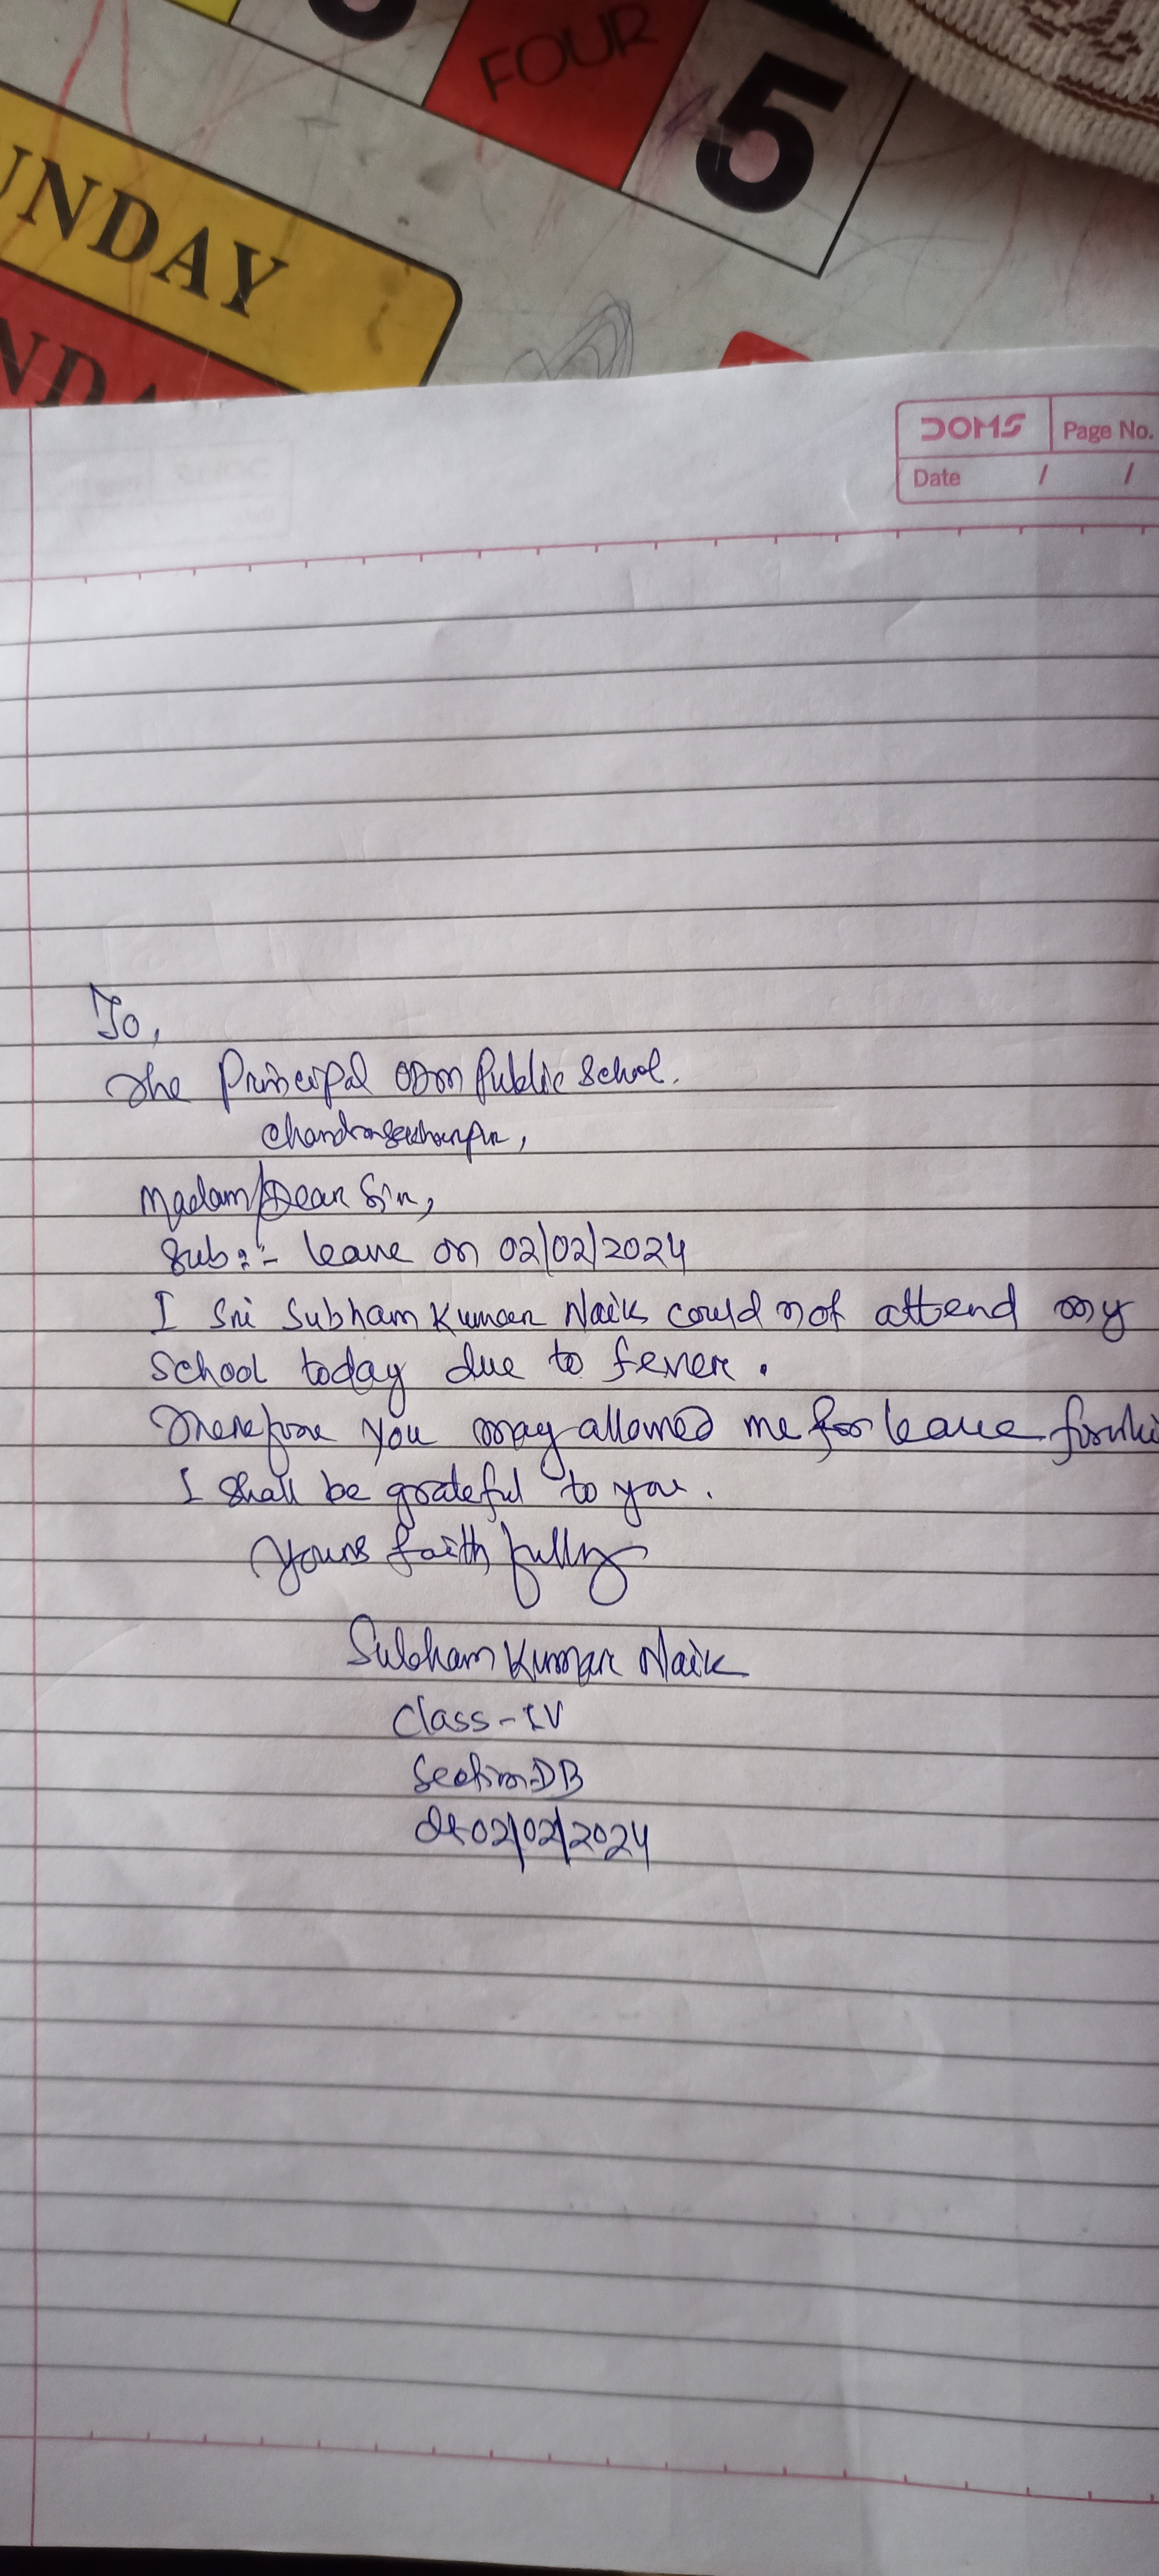 FOUR
5
UNDAY
NDA
DOMS
Page No.
Date / /
To,
The Principal ODM Public School.
Chandrasekharpur,
Madam/Dear Sir,
Sub:- leave on 02/02/2024
I Sri Subham Kumar Naik could not attend my
School today due to fever.
Therefore you may allowed me for leave
I shall be grateful to you.
Yours faithfully
Subham Kumar Naik
Class-IV
Section-DB
dt 02/02/2024